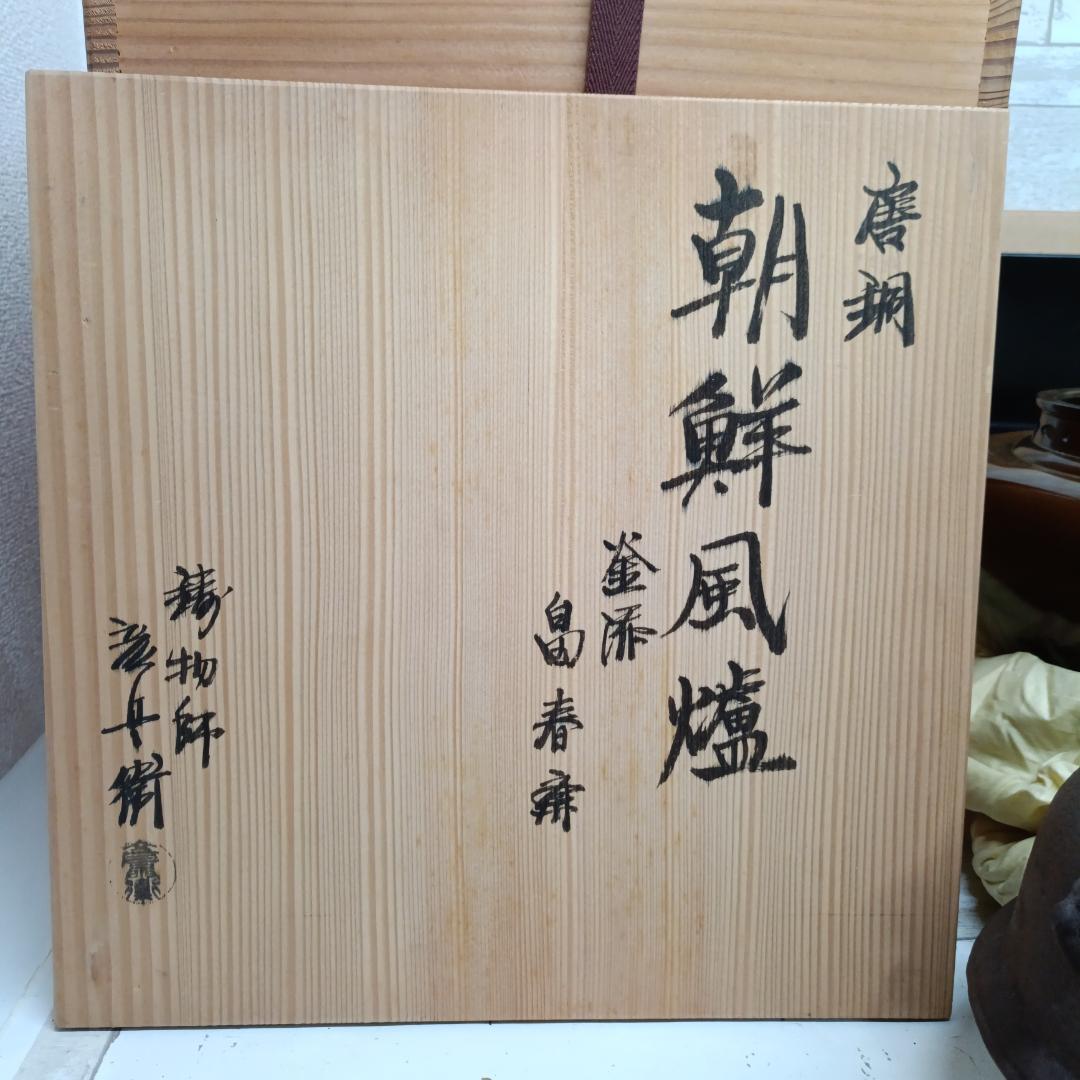 唐銅
朝鮮風爐
釜添
畠春斎
鋳物師
彦兵衛